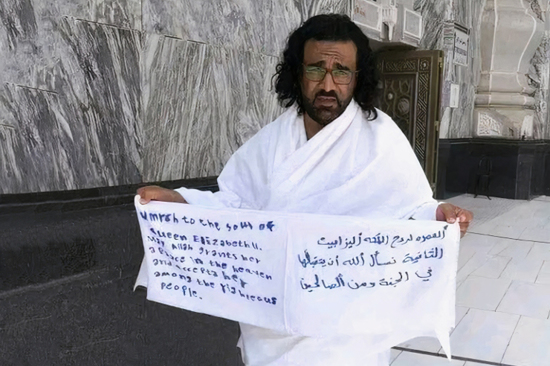 Umrah to the soul of
Queen Elizabeth II.
May Allah grants her
a Place in the heaven
and accepts her
among the righteous
people.
العمره لروح الملكه اليزابيث
الثانية نسأل الله أن يتقبلها
في الجنة ومن الصالحين